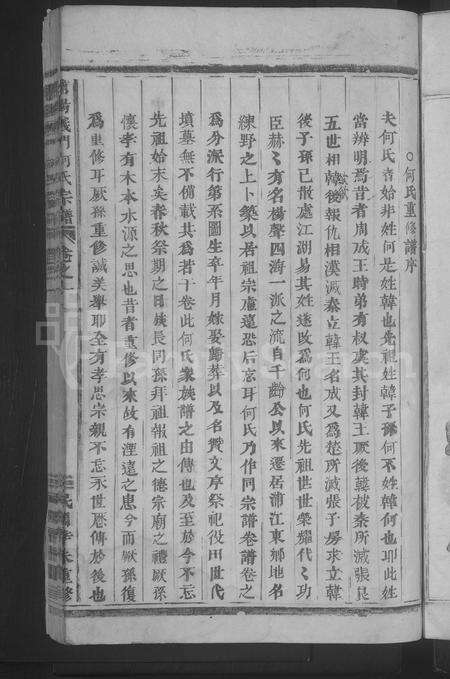 ○何氏重修譜序
夫何氏者始非姓何是姓韓也先祖姓韓子孫何不姓韓何也叩此姓
當辨明焉昔者周成王時弟有叔虞其封韓王厥後韓被秦所滅張良
五世相韓後報仇相漢滅秦立韓王名成又爲楚所滅張子房求立韓
後子孫已散處江湖易其姓遂改爲何也何氏先祖世世榮耀代〻功
臣赫〻有名揚聲四海一派之流自千齡公以來遷居浦江東鄉地名
練野之上卜築以居祖宗廬遠恐后忘耳何氏乃作同宗譜卷譜卷之
爲分派行第系圖生卒年月嫁娶歸葬以及名賢文序祭祀役田世代
墳墓無不備載其爲若干卷此何氏家族譜之由傳也及至於今不忘
先祖始末矣春秋祭期之日族長同孫拜祖報祖之德宗廟之禮厥孫
懷孝有木本水源之思也昔者重修以來故有湮遠之患今而厥孫復
爲重修耳厥孫重修誠美舉聊全有孝思宗親不忘永世厯傳於後也
義門何氏宗譜 卷之
民國 年 重修